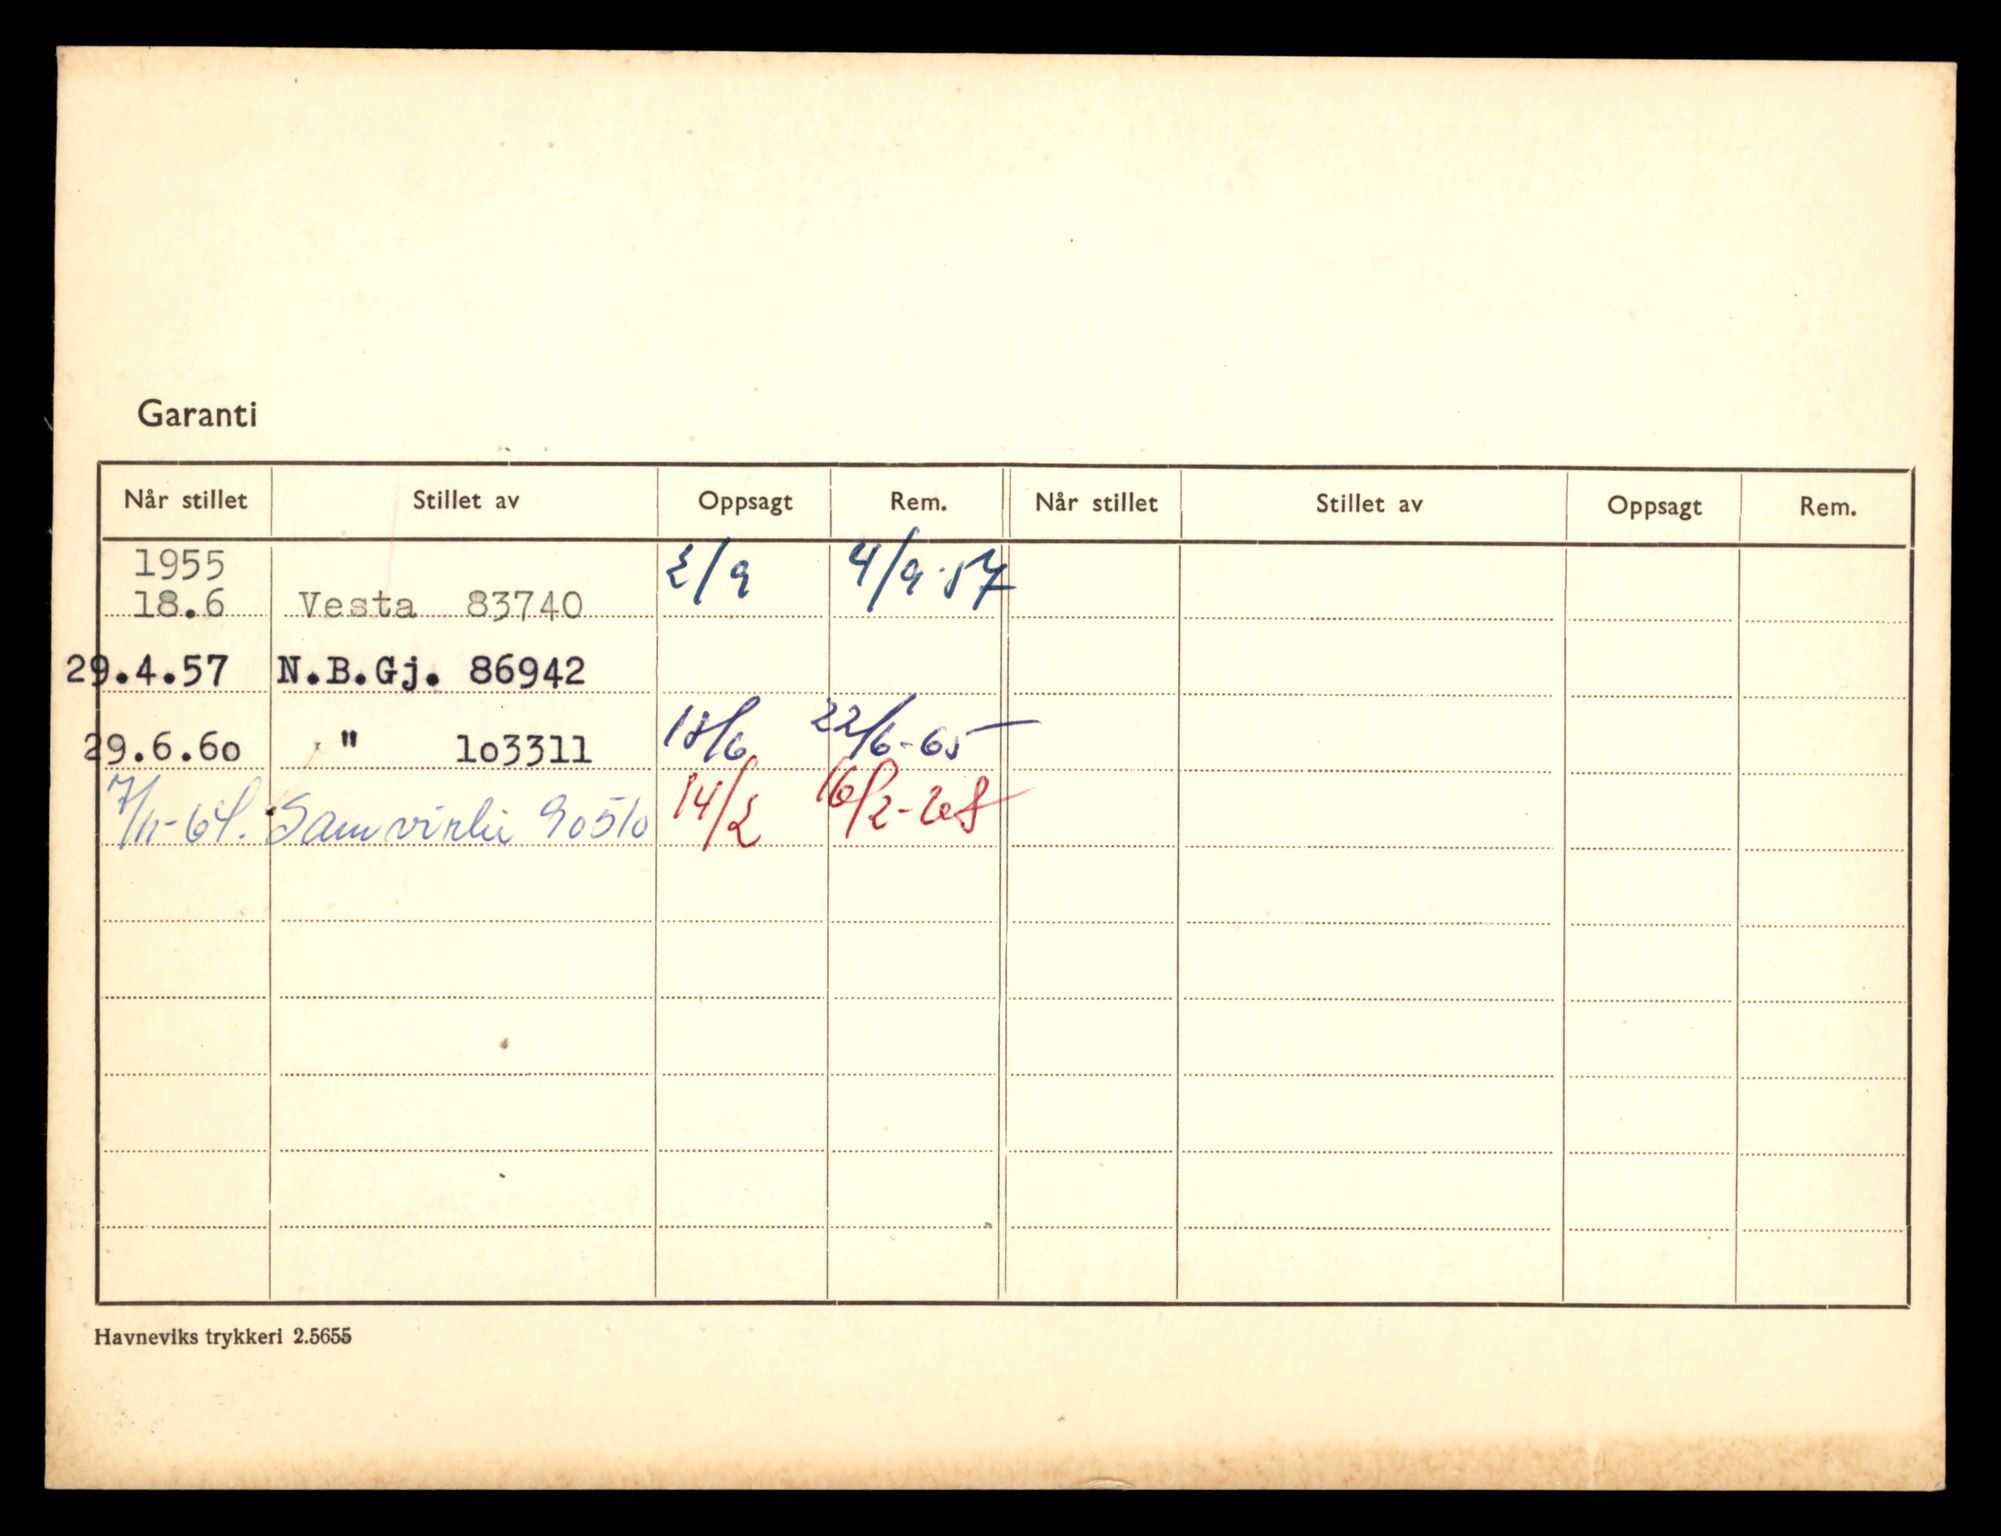 Garanti
Når stillet Stillet av Oppsagt Rem. Når stillet Stillet av Oppsagt Rem.
1955 2/9 4/9-57
18.6 Vesta 83740
29.4.57 N.B.Gj. 86942
29.6.60 " 103311 18/6 22/6-65
7/11-64. Samvirke 90510 14/2 16/2-68
Havneviks trykkeri 2.5655